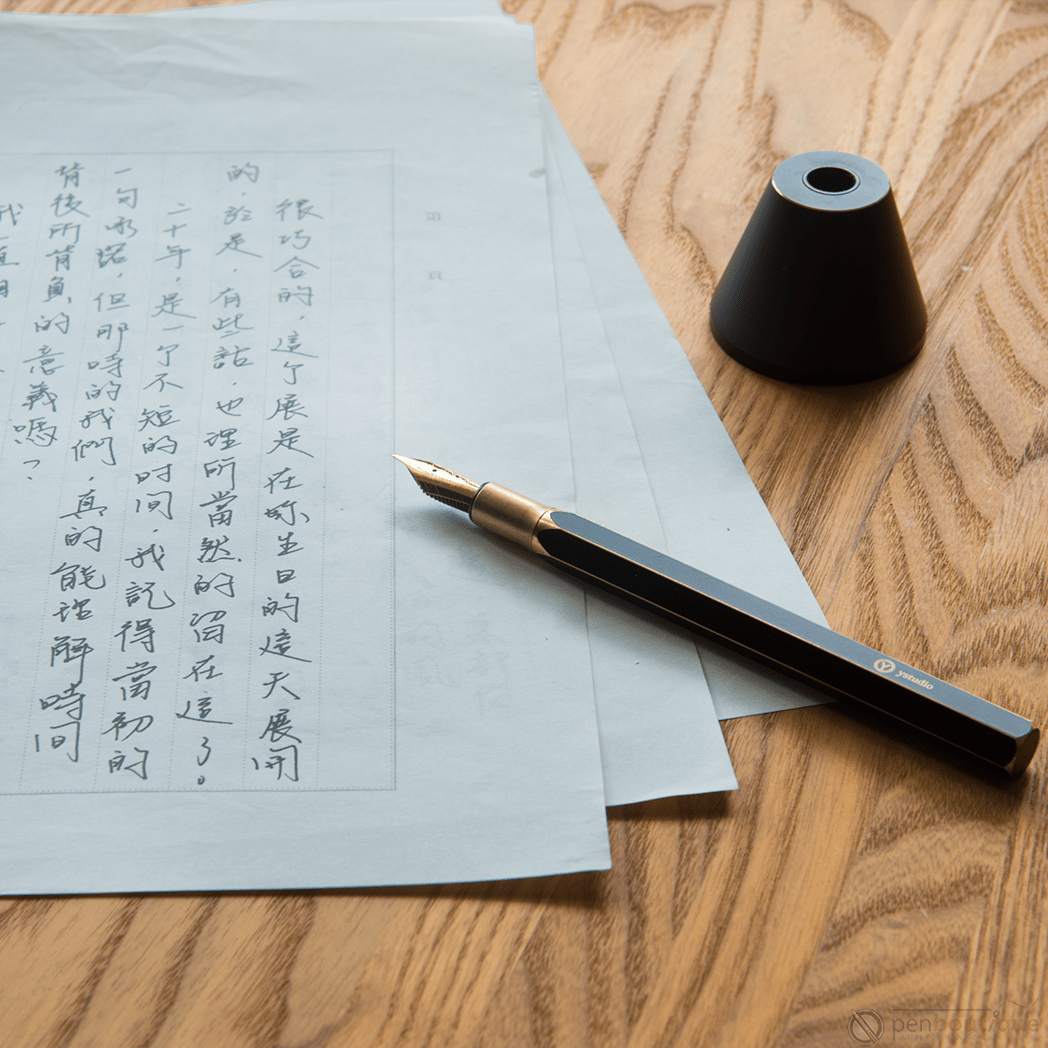 第 頁
很巧合的，這个展是在妳生日的這天展開
的，於是，有些話，也理所當然的留在這了。
二十年，是一个不短的时间，我記得當初的
一句承諾，但那時的我們，真的能理解時间
背後所背負的意義嗎？
我一直
ystudio
penboutique